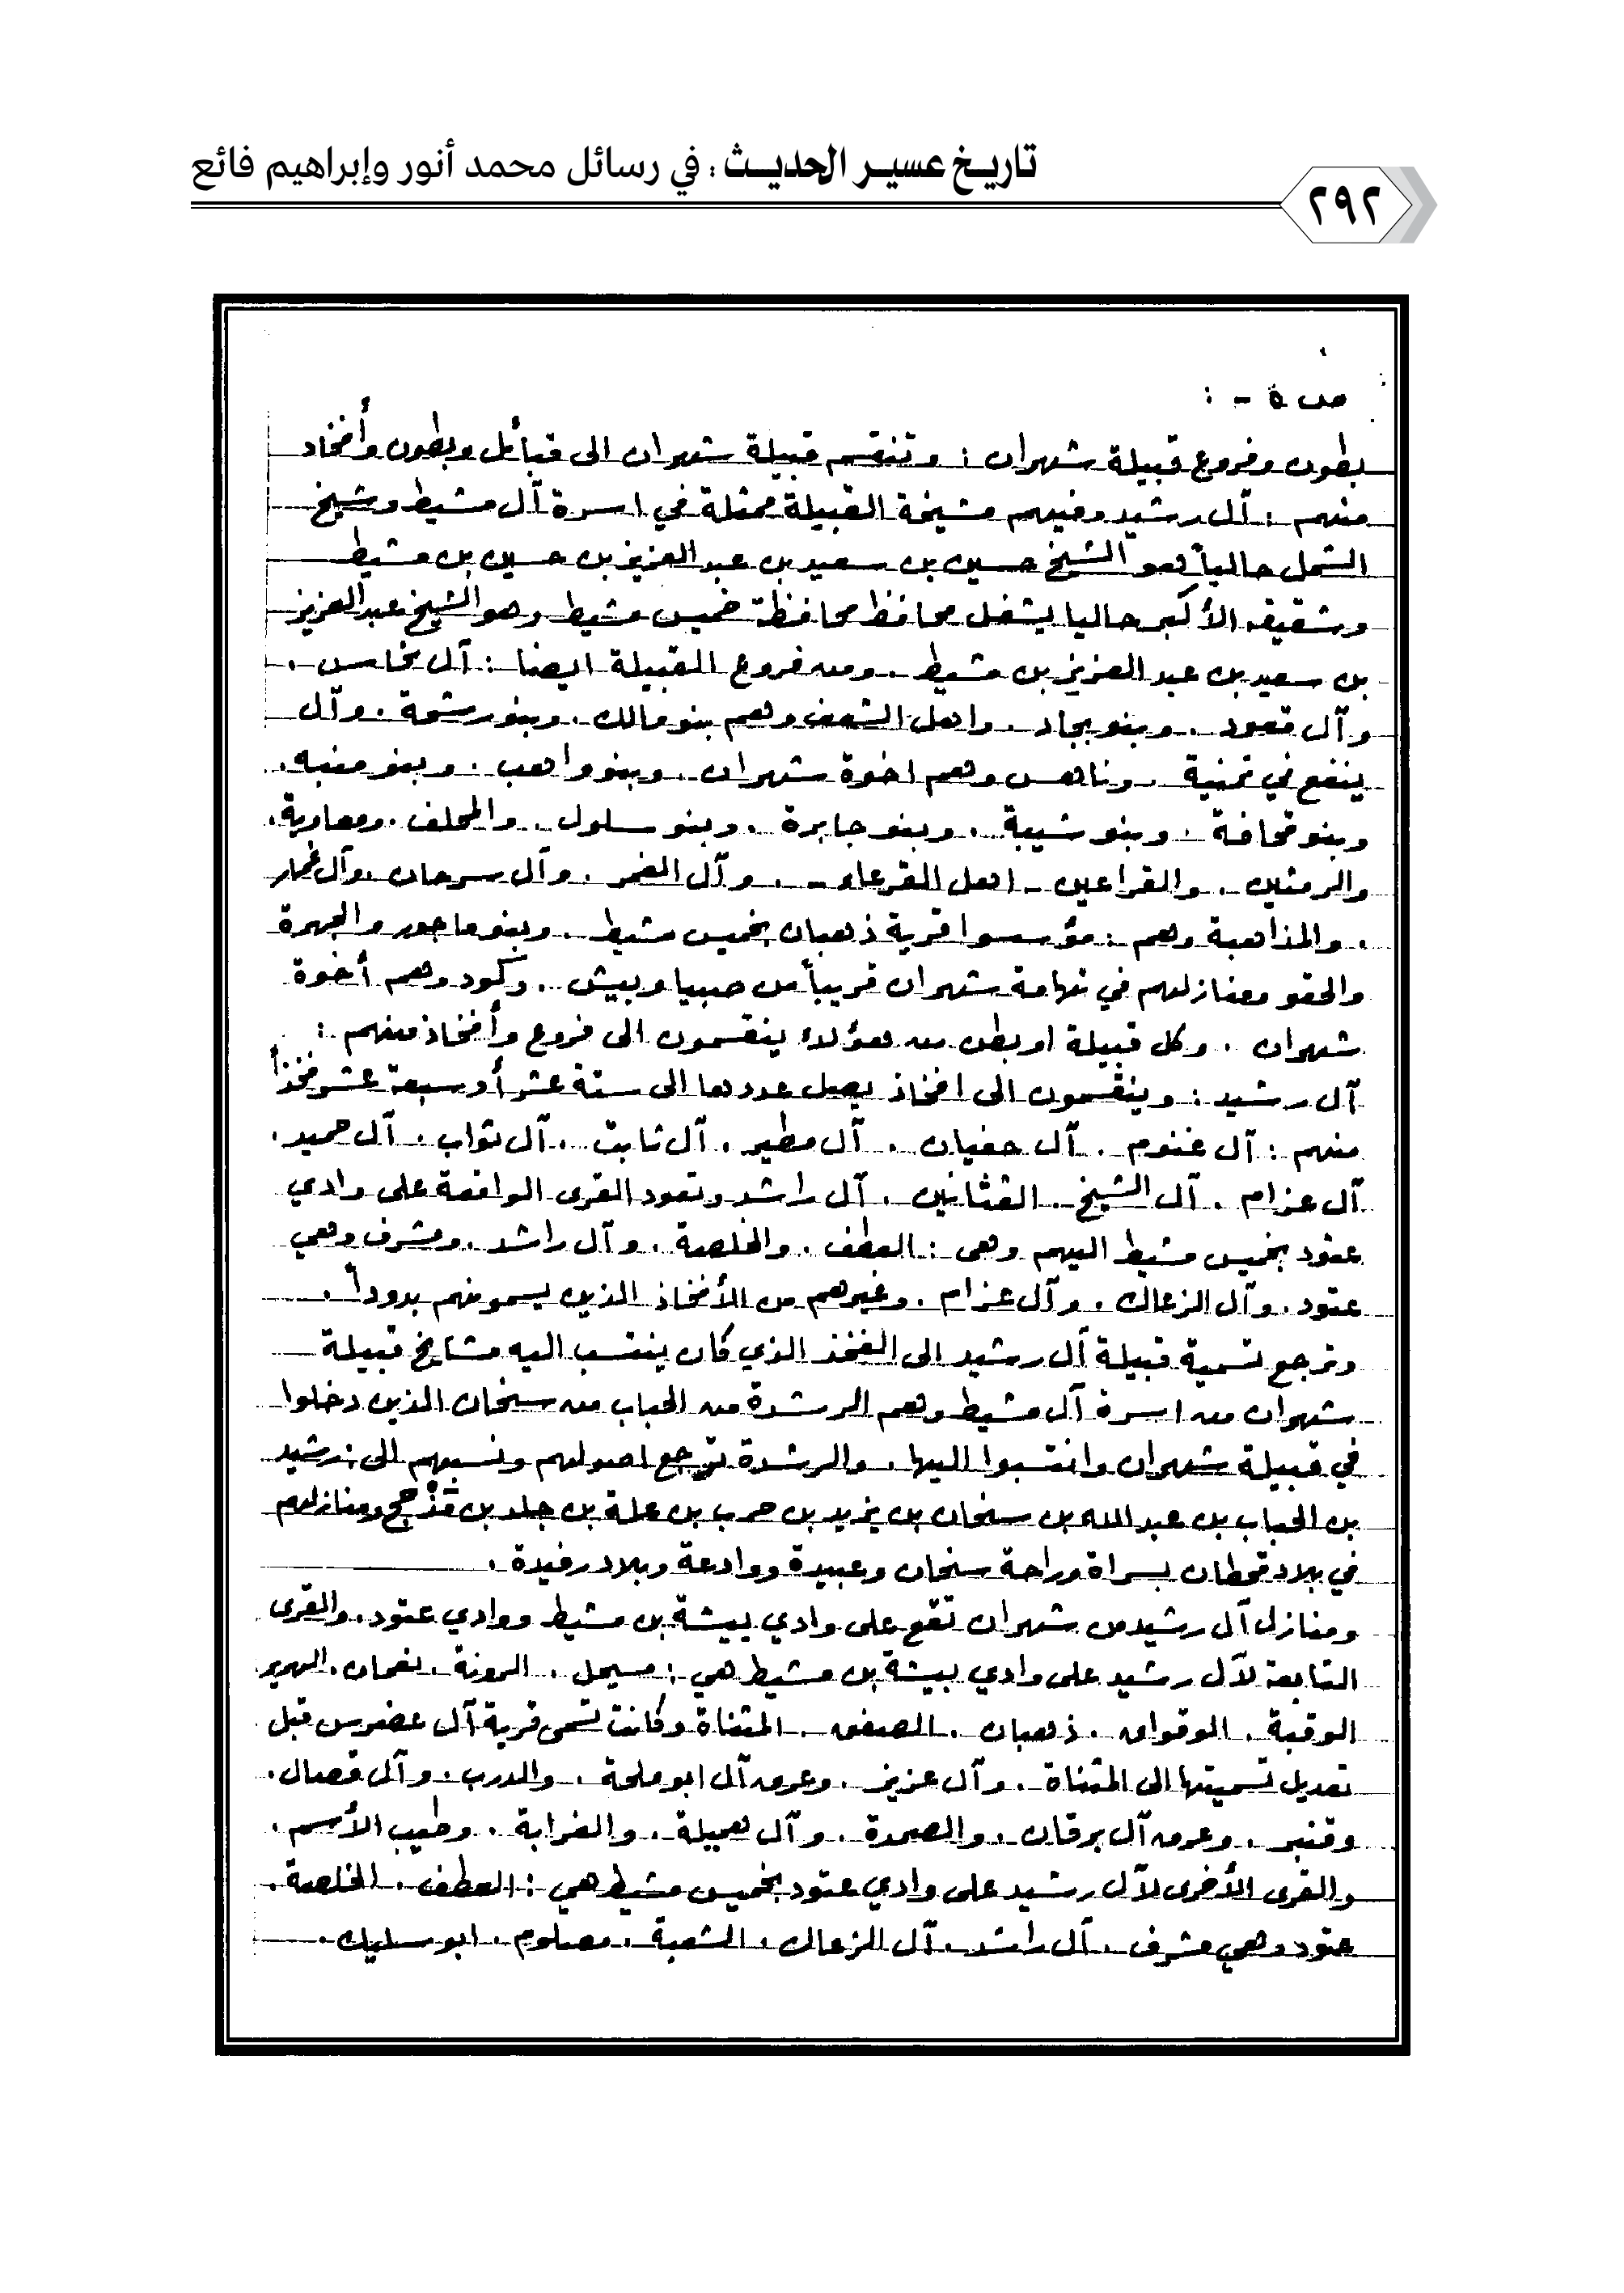 تاريخ عسير الحديث : في رسائل محمد أنور وإبراهيم فائع
٢٩٢
ص ٥ - :
بطون وفروع قبيلة شهران : وتنقسم قبيلة شهران الى قبائل وبطون وأفخاد
منهم : آل رشيد وفيهم مشيخة القبيلة ممثلة في اسرة آل مشيط وشيخ
الشمل حالياً هو الشيخ حسين بن سعيد بن عبد العزيز بن حسين بن مشيط
وشقيقه الأكبر حاليا يشغل محافظ محافظة خميس مشيط وهو الشيخ عبد العزيز
بن سعيد بن عبد العزيز بن مشيط . ومن فروع القبيلة ايضا : آل
وآل قعود . وبنو بجاد . واهل الشعف وهم بنو مالك . وبنو رشمة . وآل
ينفع في تمنية . وناهس وهم اخوة شهران . وبنو واهب . وبنو منبه .
وبنو قحافة . وبنو شيبة . وبنو جابرة . وبنو سلول . والمحلف . ومعاوية .
والرمثين . والقراعين - اهل القرعاء - . وآل الغمر . وآل سرحان . وآل غمار
. والمذاهبة وهم : مؤسسوا قرية ذهبان بخميس مشيط . وبنو ماجور والجهرة
والحقو ومنازلهم في تهامة شهران قريباً من صبيا وبيش . وكود وهم أخوة
شهران . وكل قبيلة او بطن من هؤلاء ينقسمون الى فروع وأفخاذ منهم :
آل رشيد : وينقسمون الى افخاذ يصل عددها الى ستة عشر أو سبعة عشر فخذاً
منهم : آل غنوم . آل جفيان . آل مطير . آل ثابت . آل ثواب . آل حميد .
آل عزام . آل الشيخ . القثانين . آل راشد وتعود القرى الواقعة على وادي
عتود بخميس مشيط اليهم وهى : العطف . والخلصة . وآل راشد . ومشرف وهي
عتود . وآل الزعالك . وآل عزام . وغيرهم من الأفخاذ الذين يسمونهم بدوداً .
وترجع تسمية قبيلة آل رشيد الى الفخذ الذي كان ينتسب اليه مشايخ قبيلة
شهران من اسرة آل مشيط وهم الرشدة من الحباب من سنحان الذين دخلوا
في قبيلة شهران وانتسبوا اليها . والرشدة ترجع اصولهم ونسبهم الى : رشيد
بن الحباب بن عبد الله بن سنحان بن يزيد بن حرب بن علة بن جلد بن مَذْحج ومنازلهم
في بلاد قحطان بسراة وراحة سنحان وعبيدة ووادعة وبلاد رفيدة .
ومنازل آل رشيد من شهران تقع على وادي بيشة بن مشيط ووادي عتود . والقرى
التابعة لآل رشيد على وادي بيشة بن مشيط هي : مسيحل . المونة . نعمان . الهرير
الوقبة . الموقواق . ذهبان . الصفق . المثناة وكانت تسمى قرية آل عضرس قبل
تعديل تسميتها الى المثناة . وآل عزيز . وعرق آل ابو ملحة . والدرب . وآل قصال .
وقنبر . وعرق آل برقان . والصمدة . وآل هميلة . والغرابة . وطيب الأسم .
والقرى الأخرى لآل رشيد على وادي عتود بخميس مشيط هي : العطف . الخلصة .
عتود وهي مشرف . آل راشد . آل الزعالك . الشعبة . مصلوم . ابو سليك .